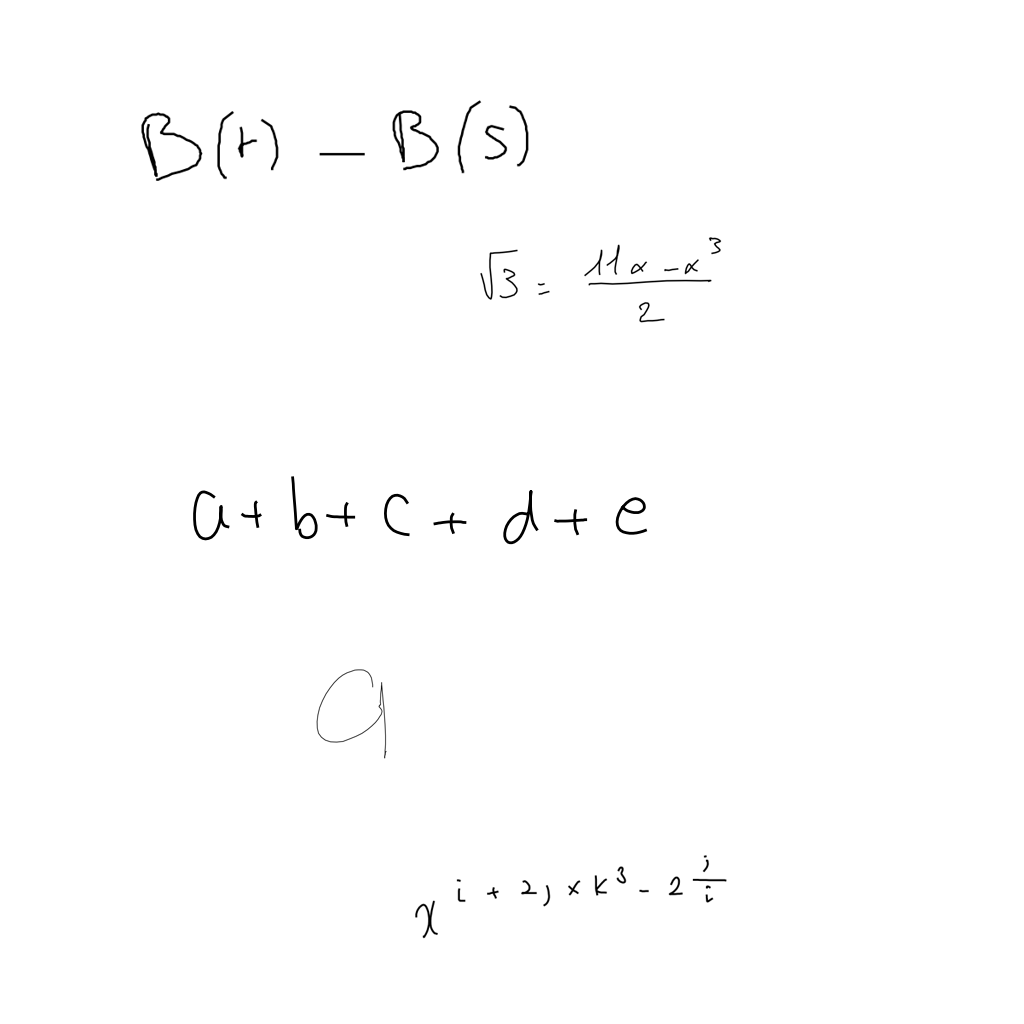 B(t) - B(s)
√3 = (11α - α^3)/2
a + b + c + d + e
a
x^{i + 2j × k^3 - 2 j/i}